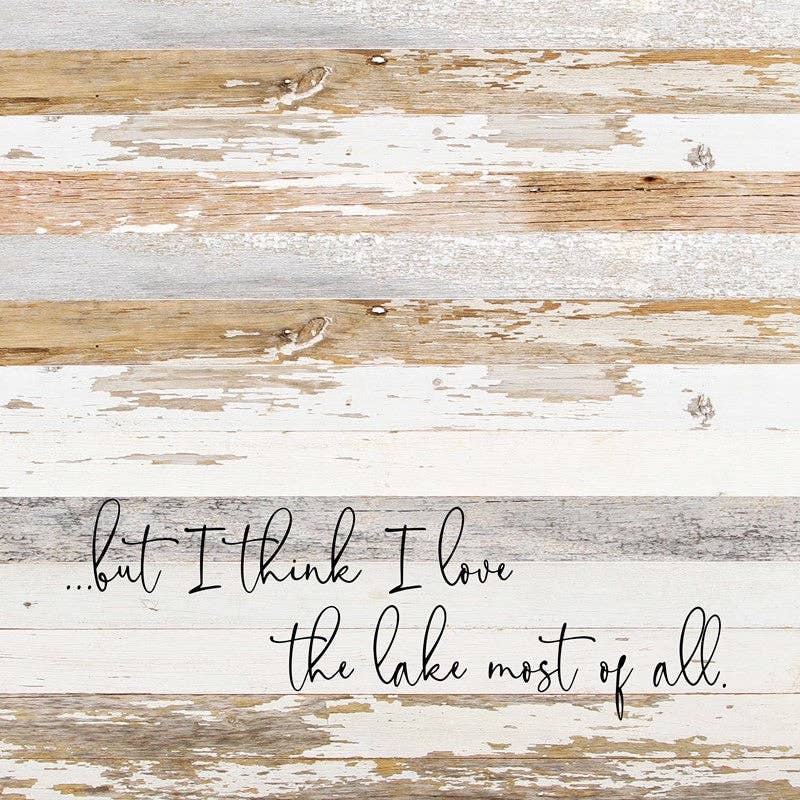 ...but I think I love
the lake most of all.